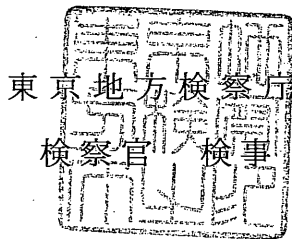 東京地方検察庁
検察官　検事